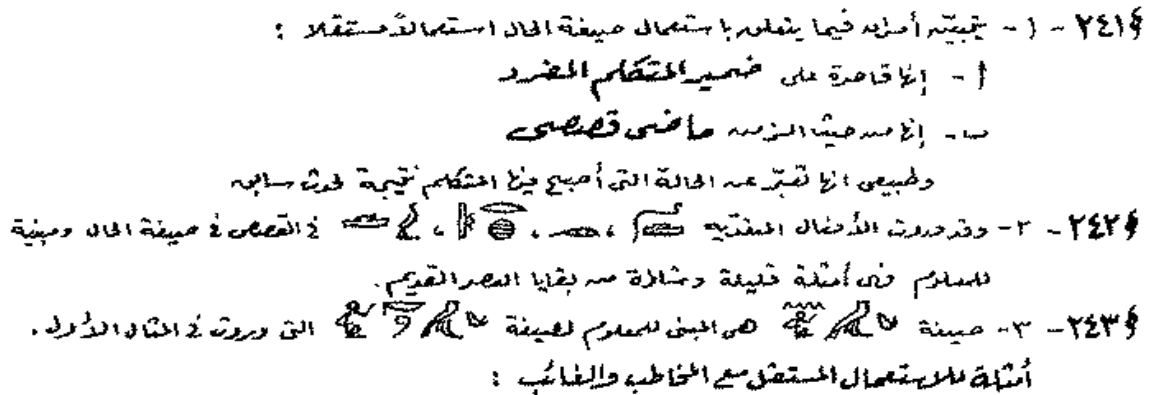 §٢٤١ - ١ - يتبين أمران فيما يتعلق باستعمال صيغة الحال استعمالاً مستقلا :
أ - إنها قاصرة على ضمير المتكلم المفرد
ب - إنها من حيث الزمن ماضى قصصى
وطبيعى انها تعبّر عن الحالة التى أصبح فيها المتكلم نتيجة لحدث سابق
§٢٤٢ - ٢ - وقد وردت الأفعال المتعدّية ، ، ، فى القصص فى صيغة الحال ومبنية
للمعلوم فى أمثلة قليلة وشاذة من بقايا العصر القديم.
§٢٤٣ - ٣ - صيغة هى المبنى للمعلوم لصيغة التى وردت فى المثال الأول.
أمثلة للاستعمال المستقل مع المخاطب والغائب :